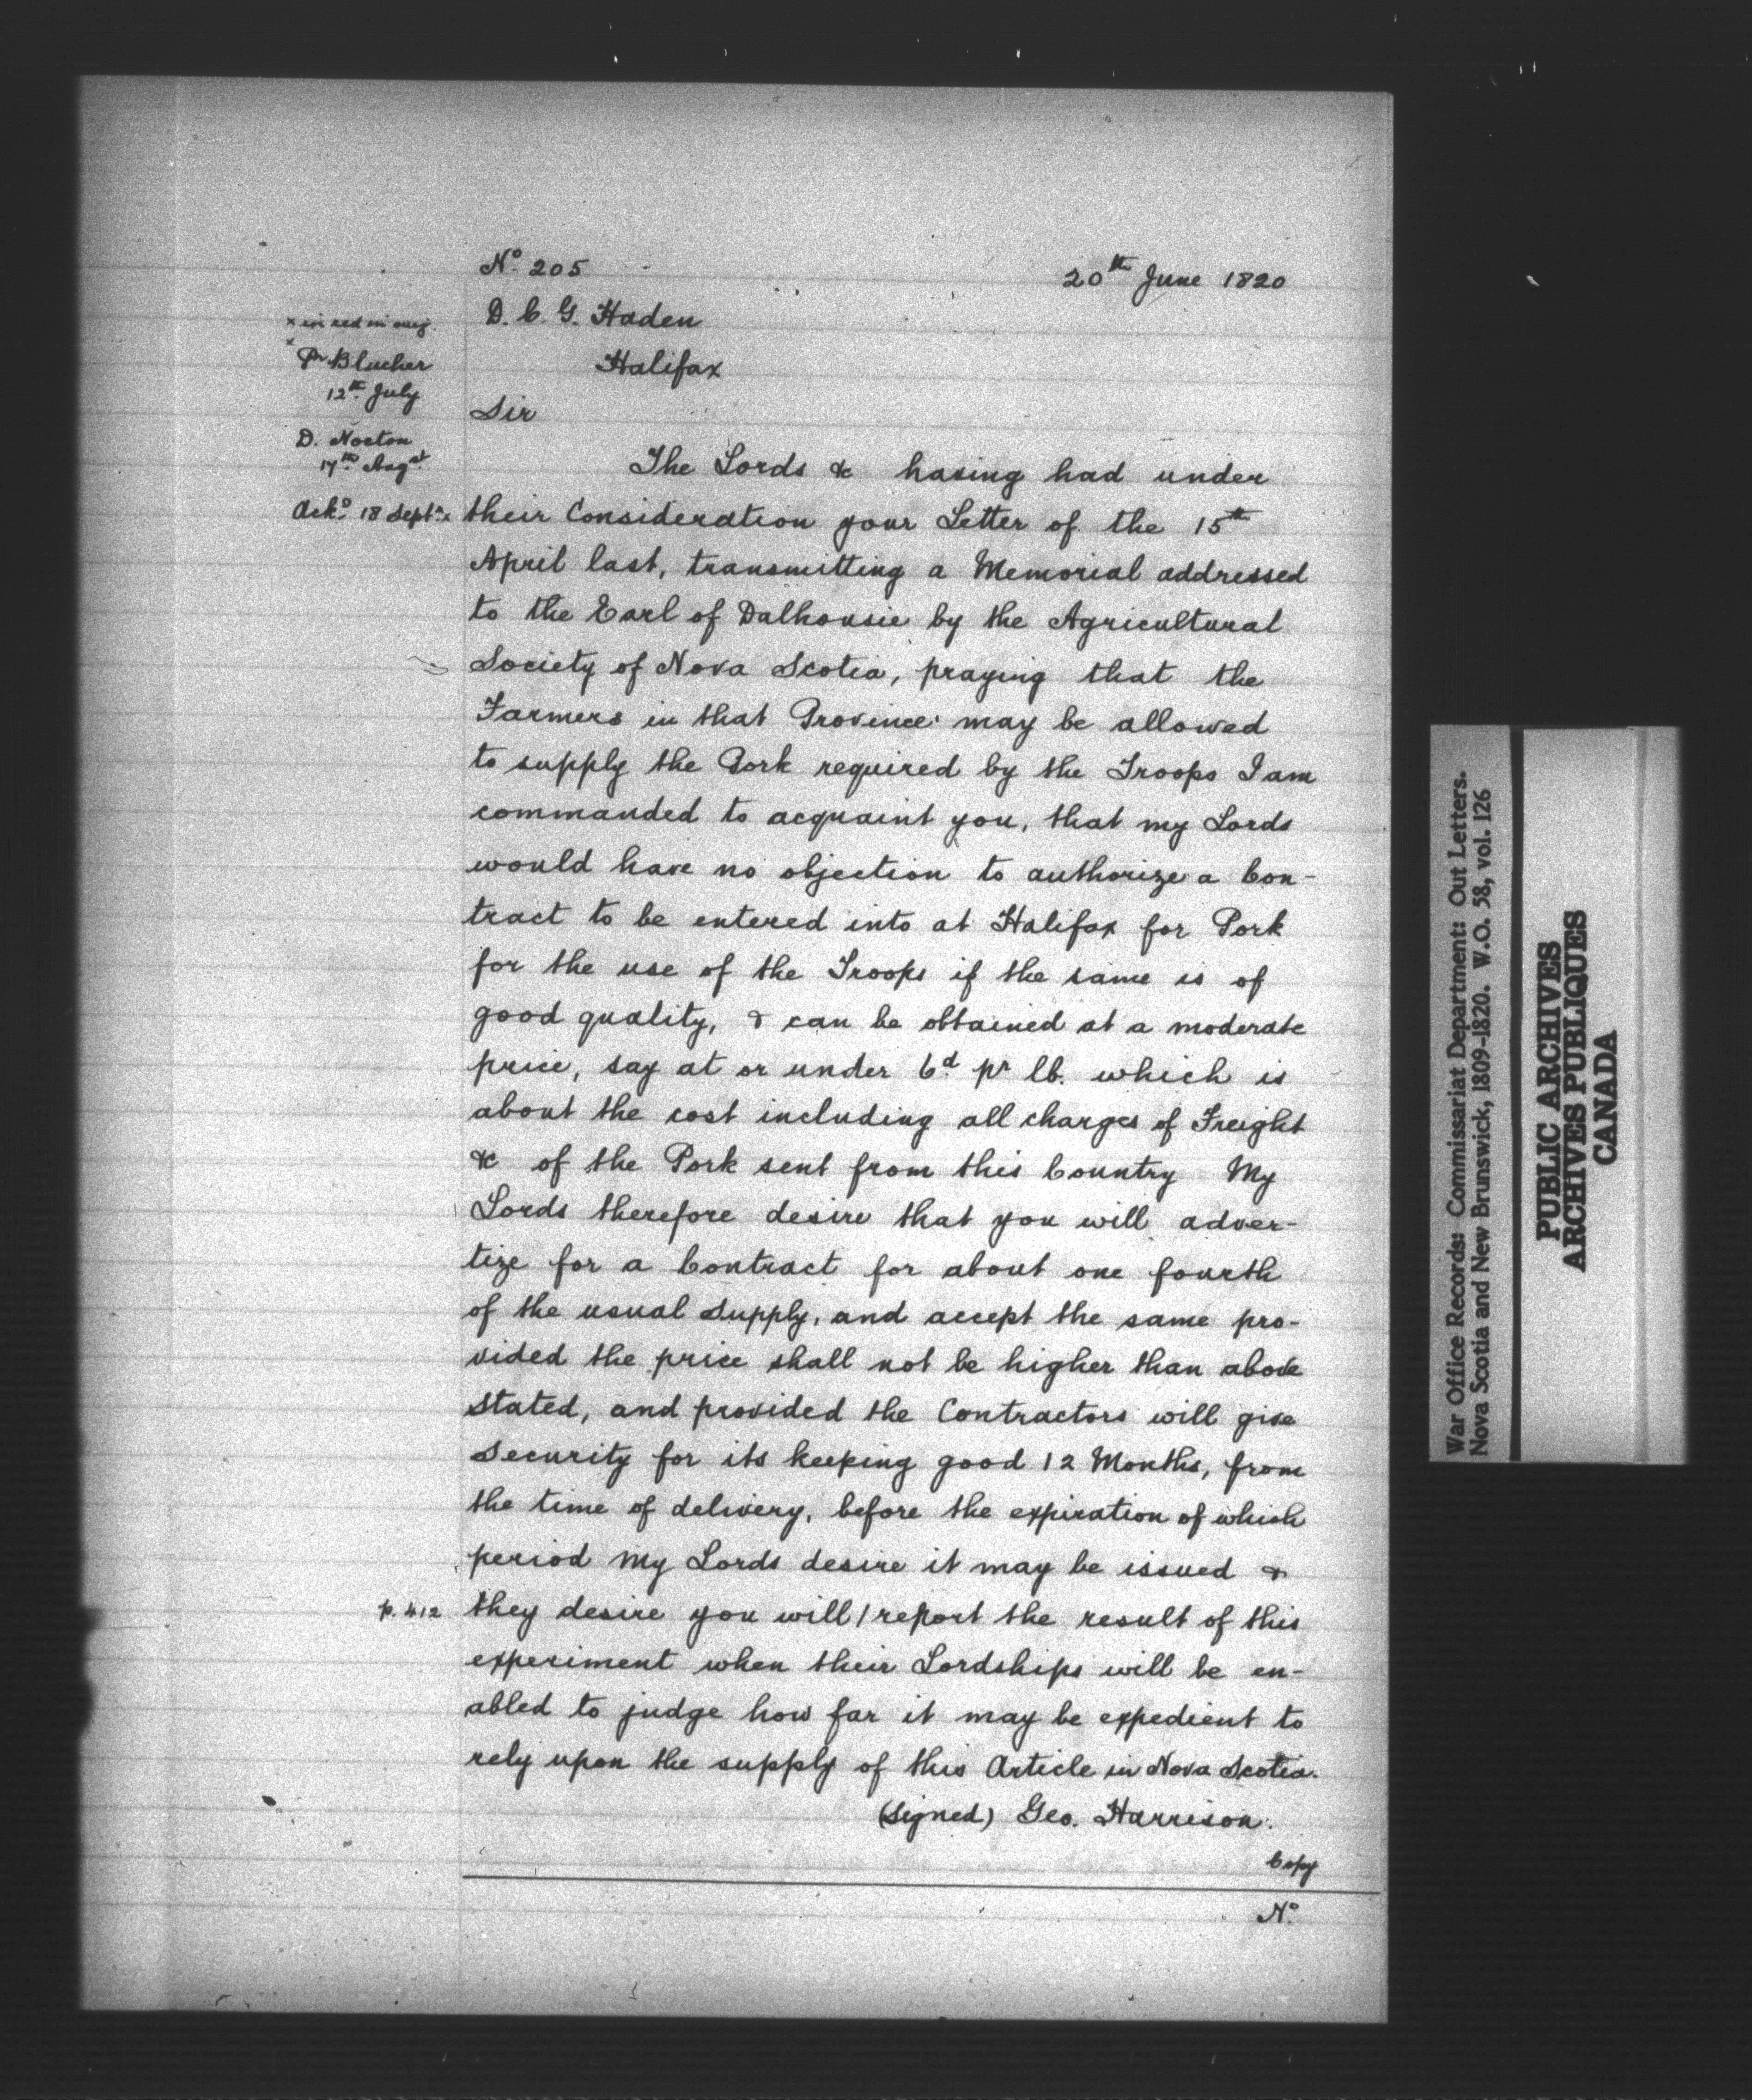 Nº 205
20th June 1820
D. C. G. Haden
Halifax
x in red in orig.
x
Pr Blucher
12th July
D. Norton
17th Augst
Ackd 18 Septr x
Sir
The Lords &c having had under
their Consideration your Letter of the 15th
April last, transmitting a Memorial addressed
to the Earl of Dalhousie by the Agricultural
Society of Nova Scotia, praying that the
Farmers in that Province may be allowed
to supply the Pork required by the Troops I am
commanded to acquaint you, that my Lords
would have no objection to authorize a Con-
tract to be entered into at Halifax for Pork
for the use of the Troops if the same is of
good quality, & can be obtained at a moderate
price, say at or under 6d pr lb. which is
about the cost including all charges of Freight
&c of the Pork sent from this Country My
Lords therefore desire that you will adver-
tize for a Contract for about one fourth
of the usual Supply, and accept the same pro-
vided the price shall not be higher than above
stated, and provided the Contractors will give
Security for its keeping good 12 Months, from
the time of delivery, before the expiration of which
period My Lords desire it may be issued &
p. 412
they desire you will / report the result of this
experiment when their Lordships will be en-
abled to judge how far it may be expedient to
rely upon the supply of this Article in Nova Scotia.
(Signed) Geo. Harrison.
Copy
Nº
War Office Records: Commissariat Department: Out Letters.
Nova Scotia and New Brunswick, 1809-1820. W.O. 58, vol. 126
PUBLIC ARCHIVES
ARCHIVES PUBLIQUES
CANADA